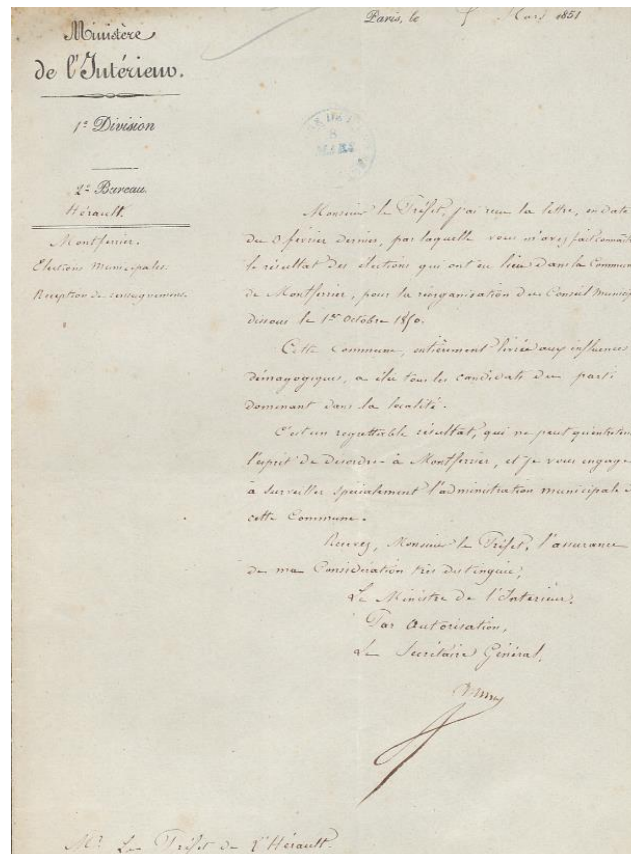 Ministère
de l'Intérieur.
1e Division
2e Bureau.
Hérault.
Montferrier.
Elections Municipales.
Réception de renseignemens.
Paris, le 5 Mars 1851
8
MARS
Monsieur le Préfet, j'ai reçu la lettre, en date
du 3 février dernier, par laquelle vous m'avez fait connaître
le résultat des élections qui ont eu lieu dans la Commune
de Montferrier, pour la réorganisation du Conseil Municip
dissous le 1er Octobre 1850.
Cette Commune, entièrement livrée aux influences
démagogiques, a élu tous les candidats du parti
dominant dans la localité.
C'est un regrettable résultat, qui ne peut qu'entretenir
l'esprit de désordre à Montferrier, et je vous engage
à surveiller spécialement l'administration municipale
cette Commune.
Recevez, Monsieur le Préfet, l'assurance
de ma Considération très distinguée,
Le Ministre de l'Intérieur,
Par Autorisation,
Le Secrétaire Général,
Mr. Le Préfet de l'Hérault.